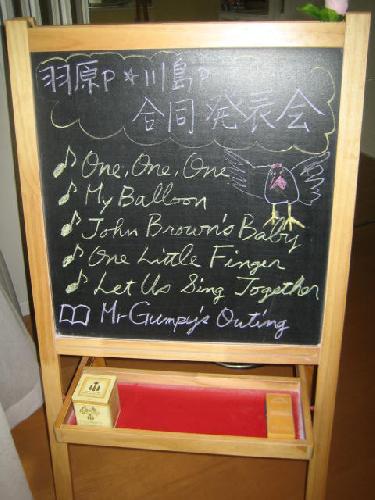 羽原P★川島P
合同発表会
♪ One, One, One
♪ My Balloon
♪ John Brown's Baby
♪ One Little Finger
♪ Let Us Sing Together
Mr Gumpy's Outing